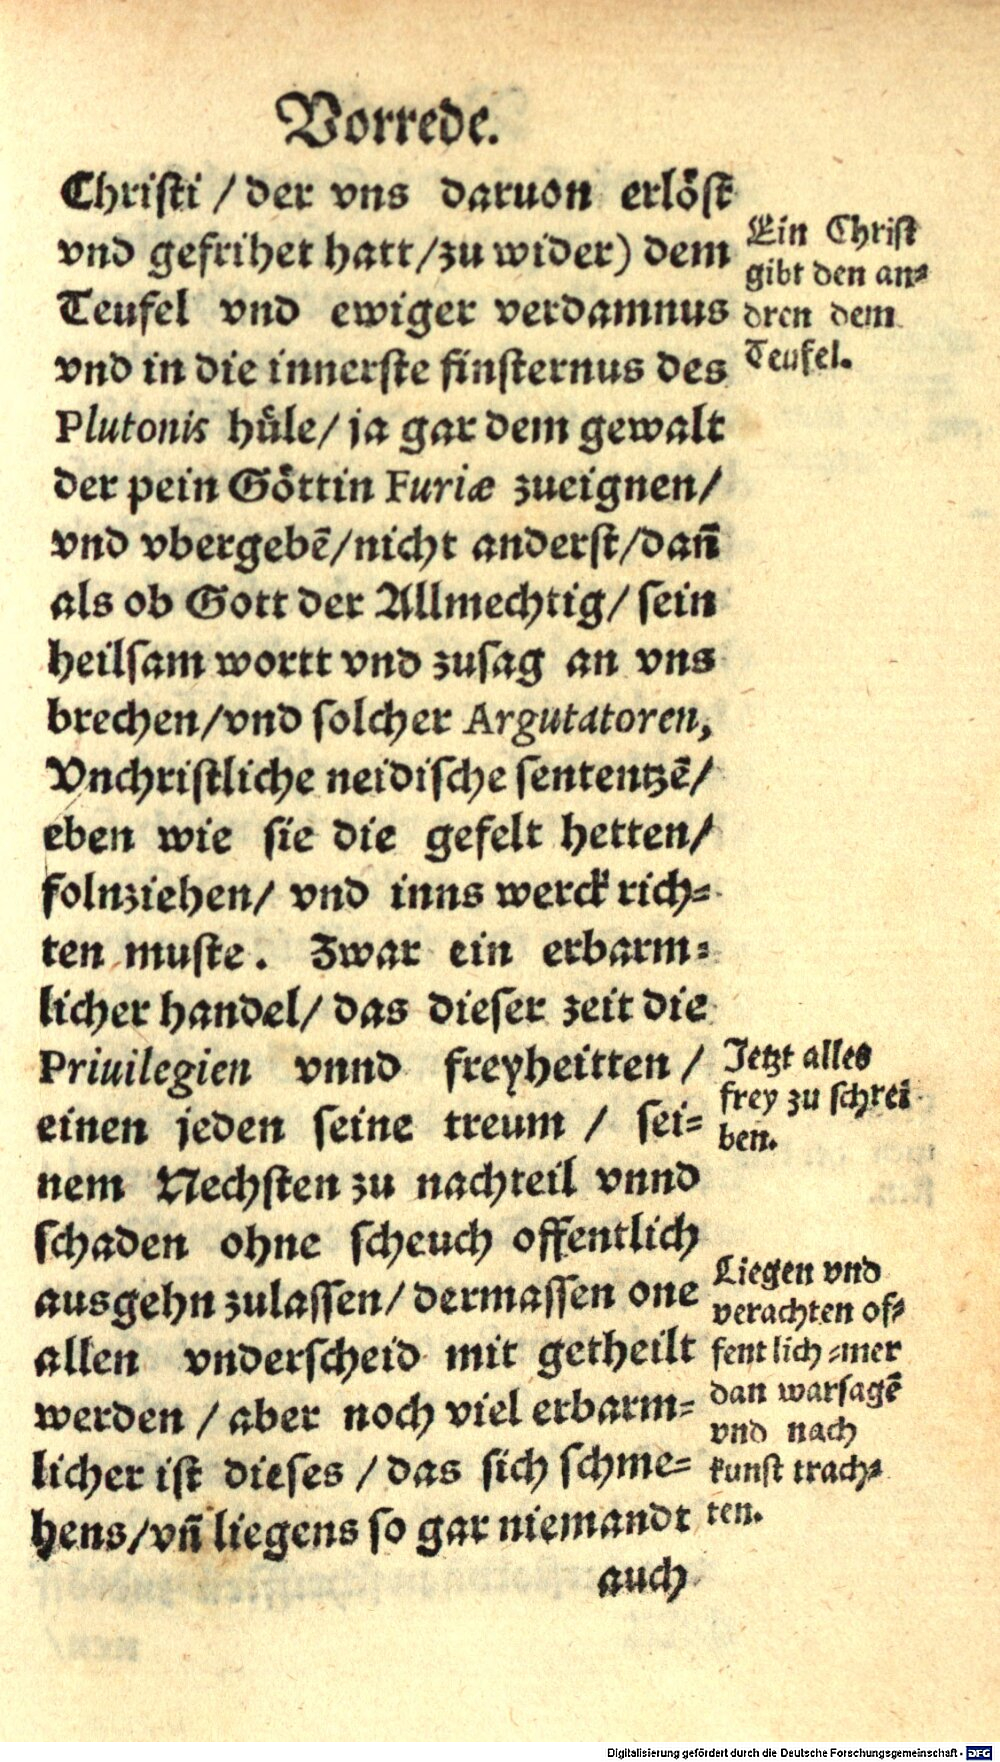 Vorrede.
Christi / der vns daruon erlöst
vnd gefrihet hatt/zu wider) dem
Teufel vnd ewiger verdamnus
vnd in die innerste finsternus des
Plutonis hüle/ ja gar dem gewalt
der pein Göttin Furiæ zueignen/
vnd vbergebẽ/nicht anderst/dañ
als ob Gott der Allmechtig/ sein
heilsam wortt vnd zusag an vns
brechen/vnd solcher Argutatoren,
Vnchristliche neidische sententzẽ/
eben wie sie die gefelt hetten/
folnziehen/ vnd inns werck rich-
ten muste. Zwar ein erbarm-
licher handel/ das dieser zeit die
Priuilegien vnnd freyheitten /
einen jeden seine treum / sei-
nem Nechsten zu nachteil vnnd
schaden ohne scheuch offentlich
ausgehn zulassen/ dermassen one
allen vnderscheid mit getheilt
werden / aber noch viel erbarm-
licher ist dieses / das sich schme-
hens/vñ liegens so gar niemandt
auch
Ein Christ
gibt den an-
dren dem
Teufel.
Jetzt alles
frey zu schrei
ben.
Liegen vnd
verachten of-
fentlich mer
dan warsagẽ
vnd nach
kunst trach-
ten.
Digitalisierung gefördert durch die Deutsche Forschungsgemeinschaft - DFG